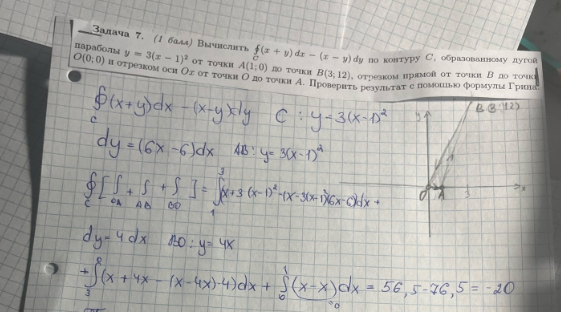 Задача 7. (1 балл) Вычислить ∮_C (x + y) dx − (x − y) dy по контуру C, образованному дугой
параболы y = 3(x − 1)² от точки A(1; 0) до точки B(3; 12), отрезком прямой от точки B до точки
O(0; 0) и отрезком оси Ox от точки O до точки A. Проверить результат с помощью формулы Грина.
∮_C (x+y)dx - (x-y)dy C : y=3(x-1)²
B(3;12)
dy=(6x-6)dx AB: y=3(x-1)²
∮_C [∫_OA + ∫_AB + ∫_BO] = ∫_1^3 (x+3(x-1)²-(x-3(x-1)²)(6x-6))dx +
y
O A 3 x
dy=4dx BO: y=4x
+∫_3^0 (x+4x-(x-4x)·4)dx + ∫_0^1 (x-x)dx = 56,5-76,5=-20
=0